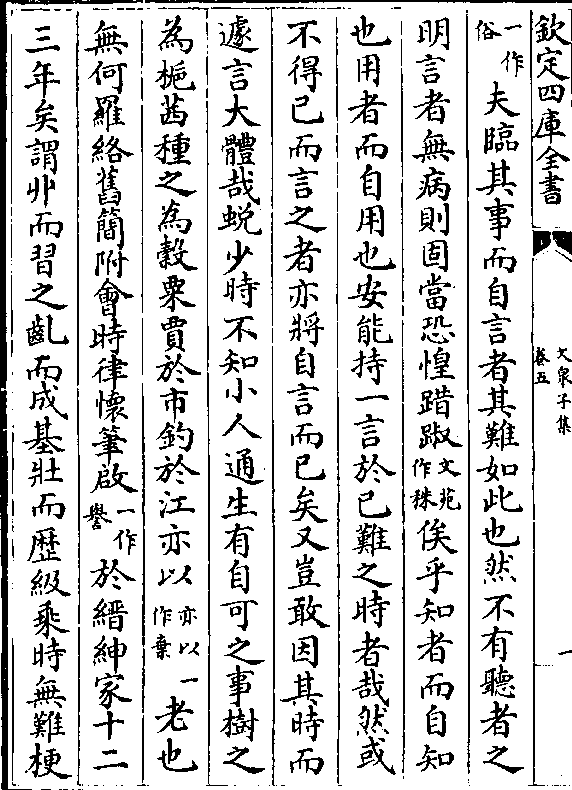 欽定四庫全書
文泉子集
卷五
一作俗夫臨其事而自言者其難如此也然不有聽者之
明言者無病則固當恐惶踖踧文苑作殊俟乎知者而自知
也用者而自用也安能持一言於已難之時者哉然或
不得已而言之者亦將自言而已矣又豈敢因其時而
遽言大體哉蛻少時不知小人通生有自可之事樹之
為梔茜種之為穀粟賈於市釣於江亦以亦以作棄一老也
無何羅絡舊簡附會時律懷筆啟一作謦於縉紳家十二
三年矣謂丱而習之齓而成基壯而歴級乗時無難梗